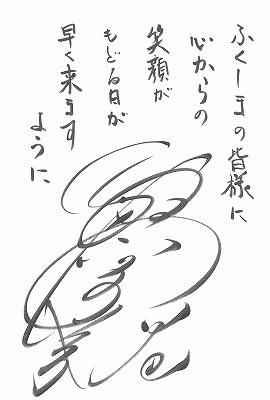 ふくしまの皆様に
心からの
笑顔が
もどる日が
早く来ます
ように